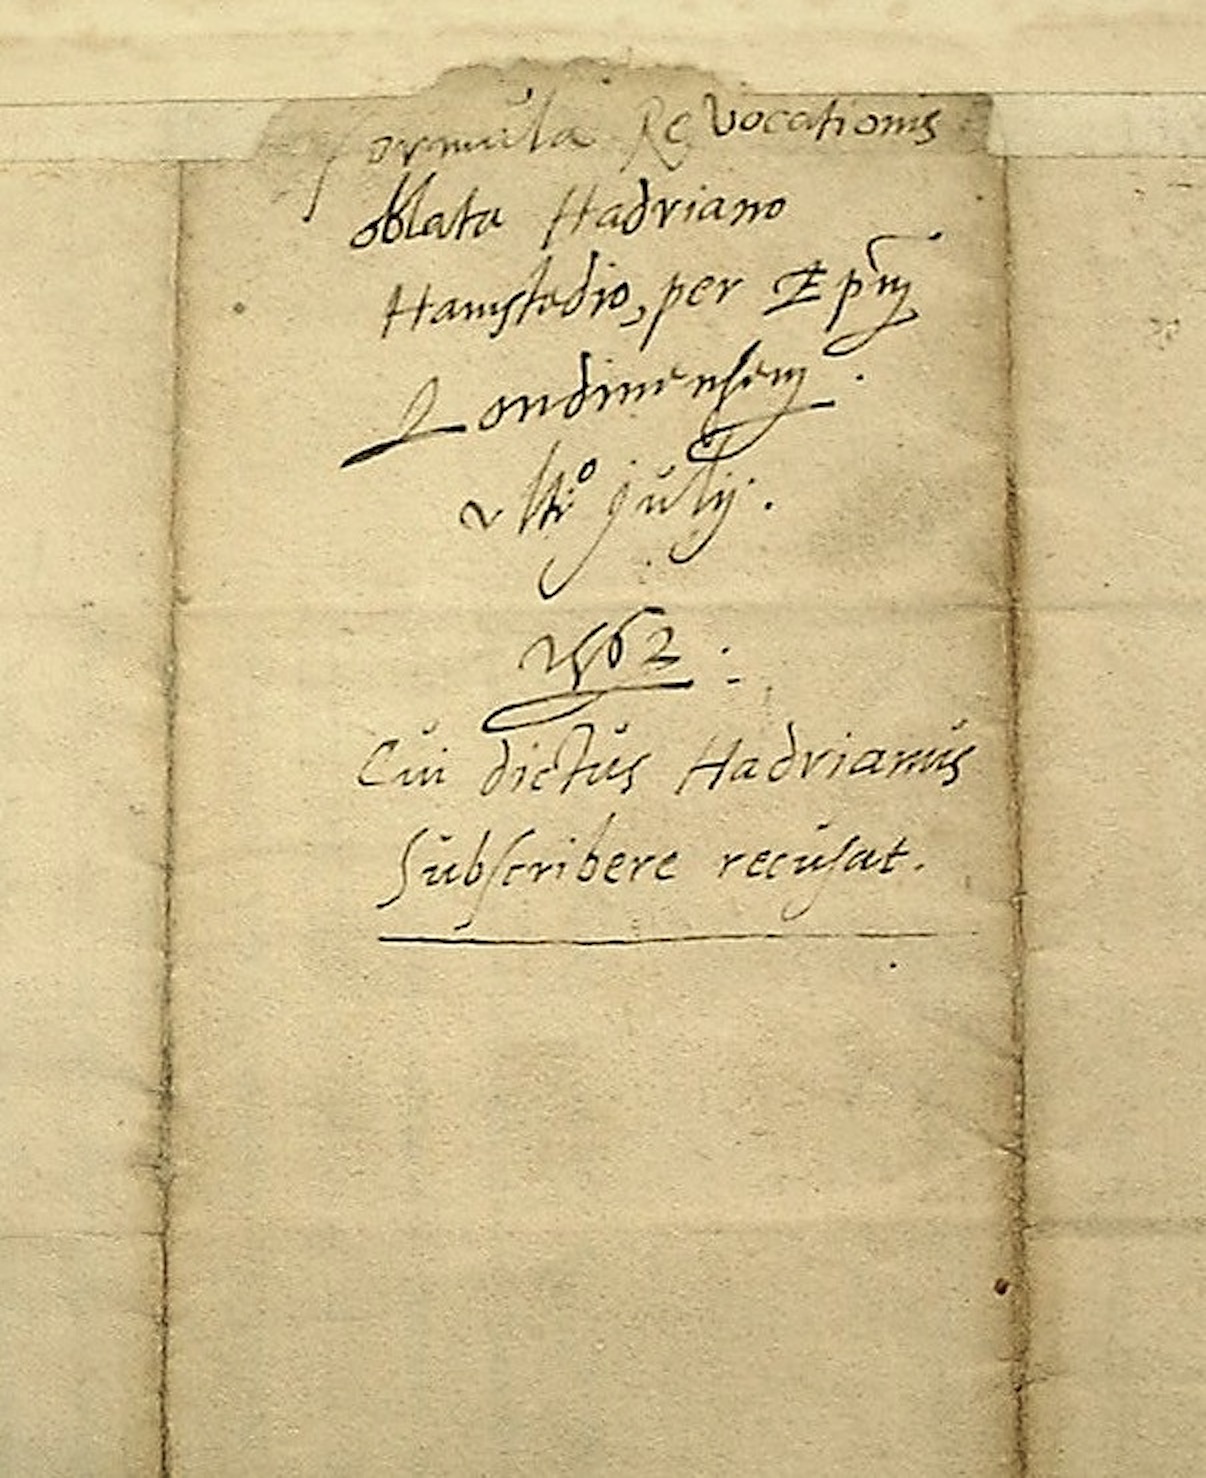 formula Revocationis
oblata Hadriano
Hamstedio, per Epm̄
Londinensem.
ulto july.
1562:
Cui dictus Hadrianus
Subscribere recusat.